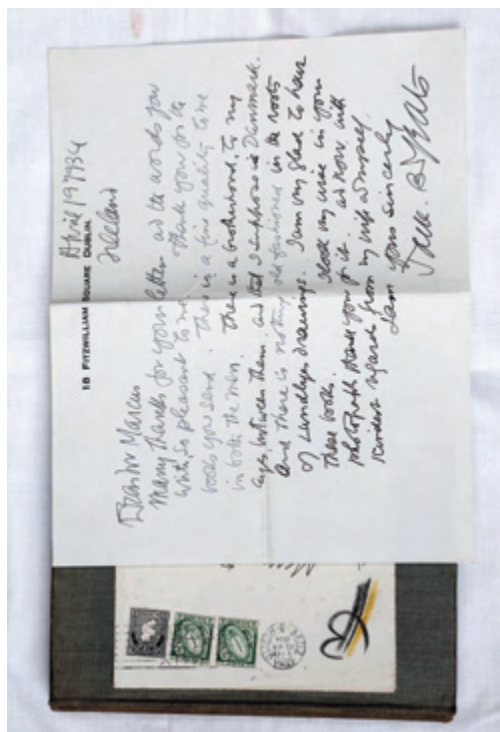 18 FITZWILLIAM SQUARE DUBLIN.
April 19 1934
Ireland
Dear Mr Marcus
Many thanks for your letter and the words you
write, so pleasant to me. Thank you for the
books you send. There is a fine quality to me
in both the men. There is a brotherhood, to my
eyes, between them, and that I suppose is Denmark.
And there is nothing old fashioned in the roots
of Lundbyes drawings. I am very glad to have
these books. I look my wise in your
photograph thank you for it. and now with
kindest regards from my wife and myself.
I am yours sincerely
Jack. B. Yeats